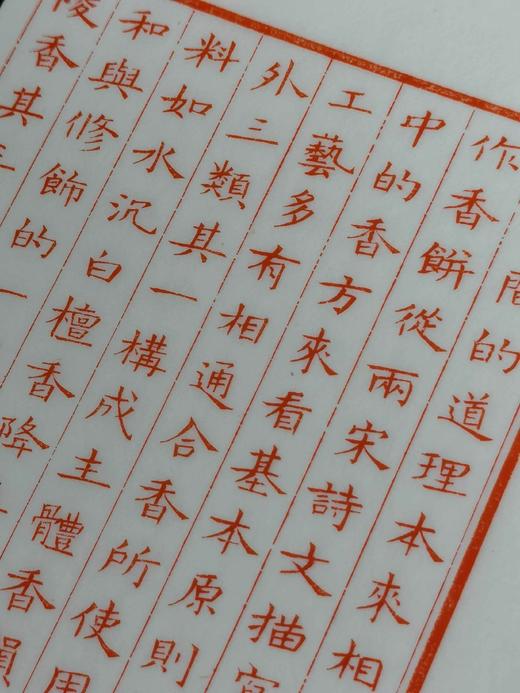 的道理本來相
作香餅從兩宋詩文描寫
中的香方來看基本原則
工藝多有相通合香所使用
外三類其一構成主體香韻
料如水沉白檀香降
和與修飾的一
陵香其